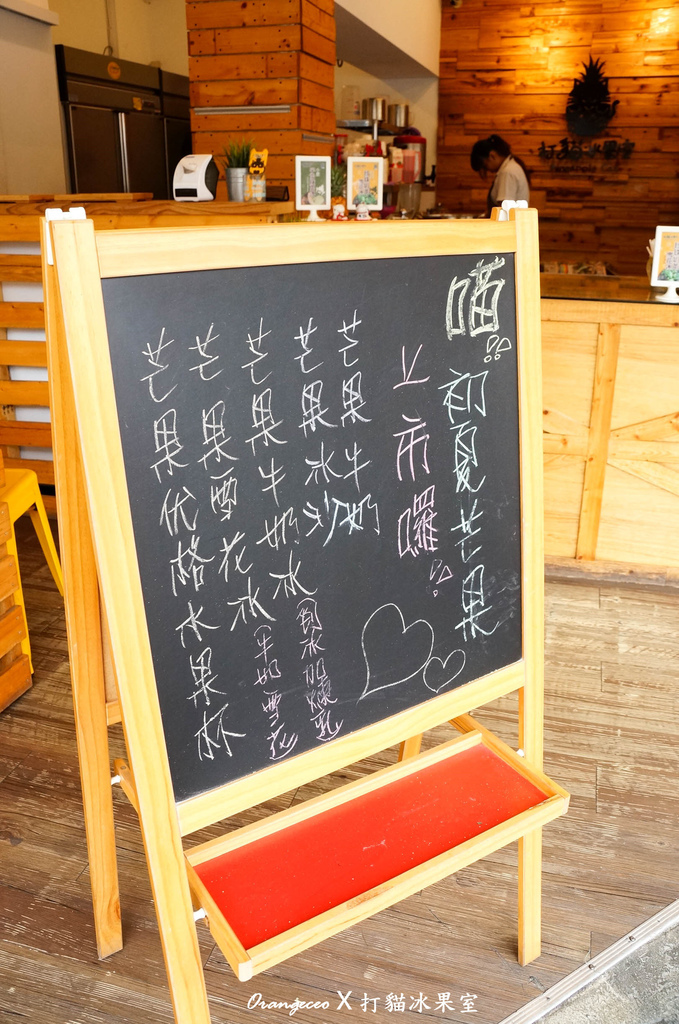 喵!!
初夏芒果
上市囉!!
芒果牛奶
芒果冰沙
芒果牛奶冰
(刨冰加煉乳)
芒果雪花冰
(牛奶雪花)
芒果优格水果杯
打貓冰果室
Orangeceo X 打貓冰果室